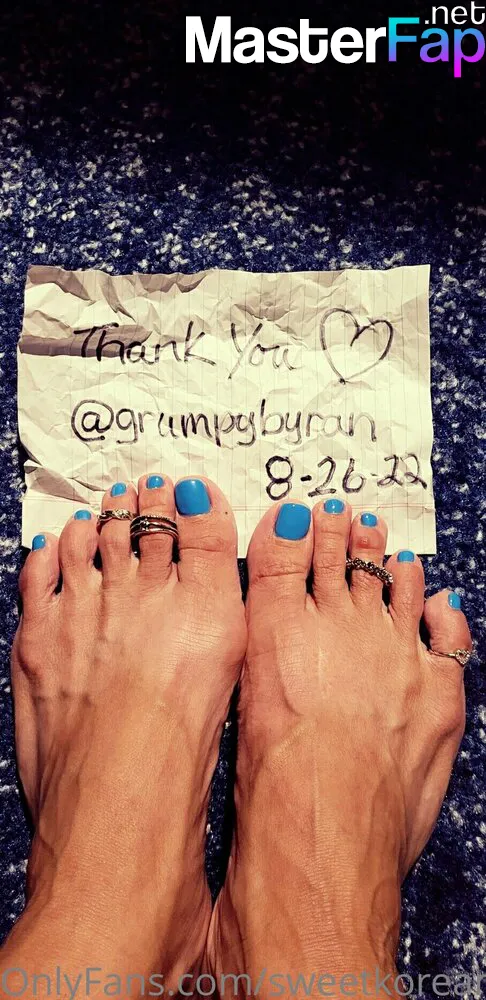 MasterFap.net
Thank You
@grumpybyran
8-26-22
OnlyFans.com/sweetkorear